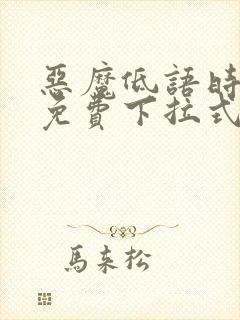 惡魔低語時
免費下拉式
馬來松